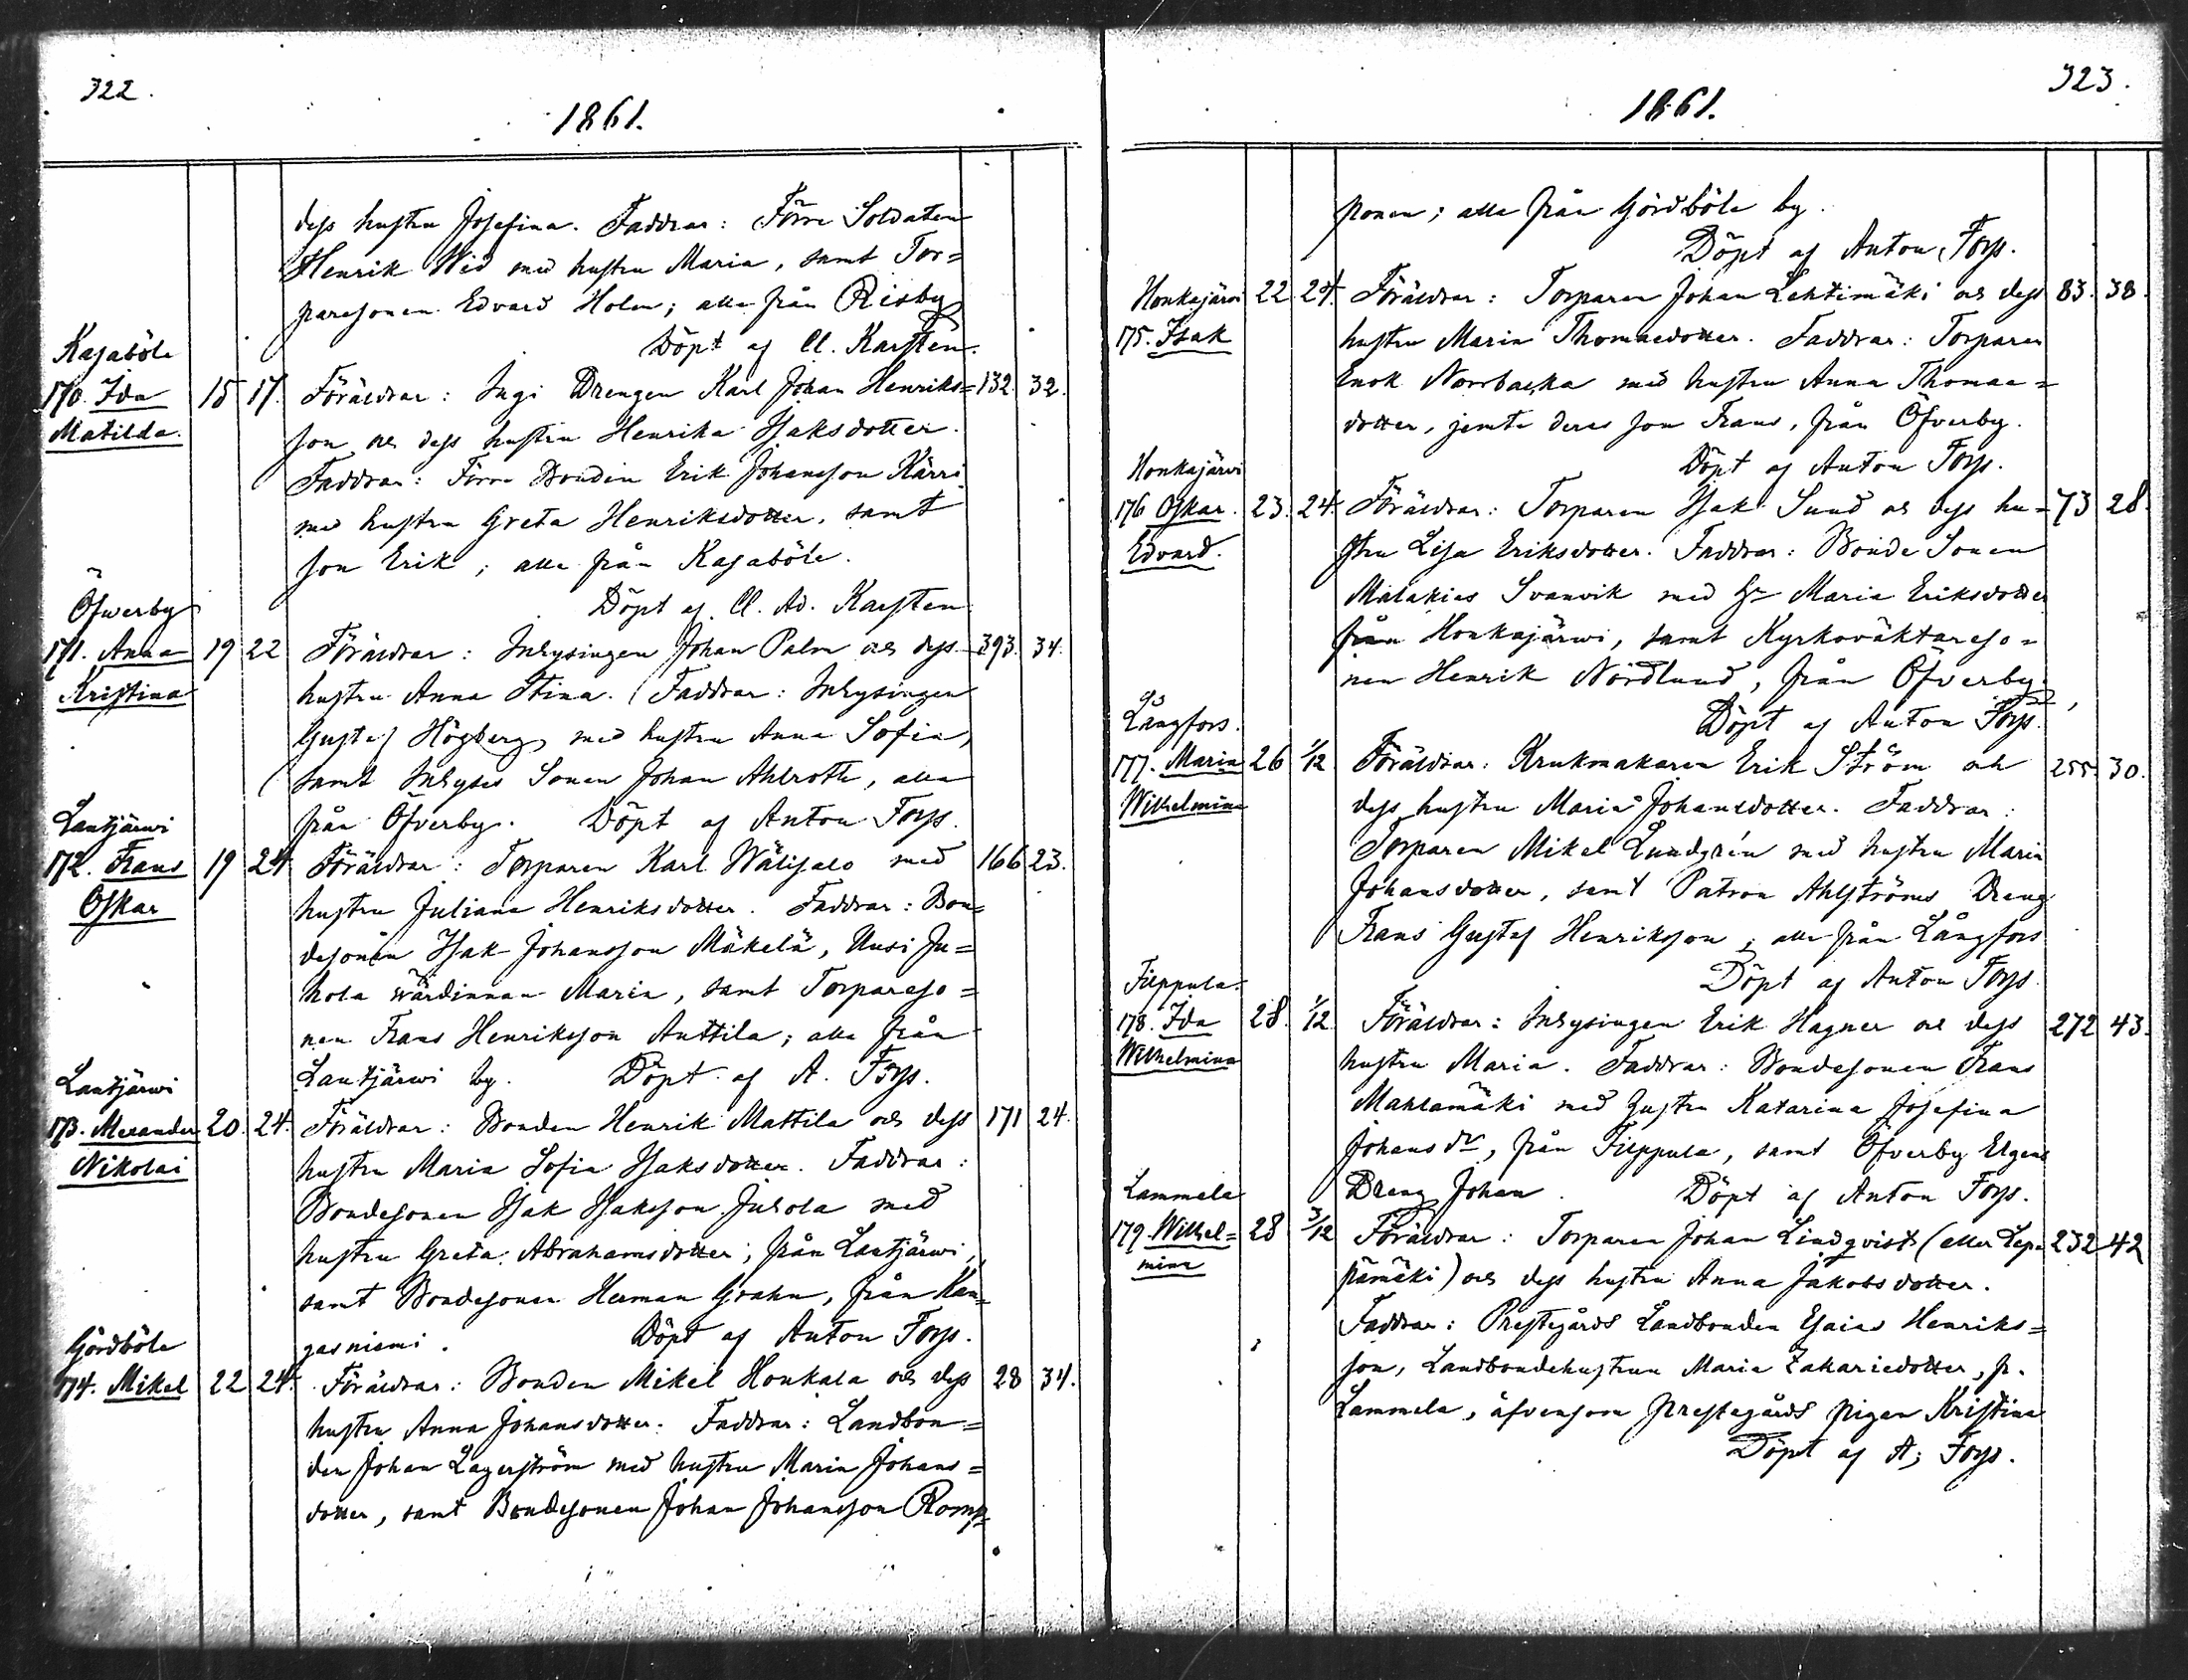 322.
1861.
dess hustru Josefina. Faddrar: Förre Soldaten
Henrik Wid med hustru Maria, samt Tor=
paresonen Edvard Holm; alla från Risby
Döpt af Cl. Karsten.
Kasaböle
170. Ida 15 17. Föräldrar: Ingi Drengen Karl Johan Henriks= 132. 32.
Matilda. son och dess hustru Henrika Isaksdotter.
Faddrar: Förre Bonden Erik Johansson Kärri
med hustru Greta Henriksdotter, samt
son Erik; alla från Kasaböle.
Döpt af Cl. Ad. Karsten
Öfwerby
171. Anna 19 22 Föräldrar: Inhysingen Johan Palm och dess 393. 34.
Kristina hustru Anna Stina. Faddrar: Inhysingen
Gustaf Högberg med hustru Anna Sofia,
samt Inhyses Sonen Johan Ahlroth, alla
från Öfverby. Döpt af Anton Forss.
Lautjärwi
172. Frans 19 24 Föräldrar: Torparen Karl Wälisalo med 166 23.
Oskar hustru Juliana Henriksdotter. Faddrar: Bon=
desonen Isak Johansson Mäkelä, Uusi Ju=
hola wärdinnan Maria, samt Torpareso=
nen Frans Henriksson Anttila; alla från
Lautjärwi by. Döpt af A. Forss.
Lautjärwi
173. Alexander 20. 24. Föräldrar: Bonden Henrik Mattila och dess 171 24.
Nikolai hustru Maria Sofia Isaksdotter. Faddrar:
Bondesonen Isak Isaksson Juhola med
hustru Greta Abrahamsdotter, från Lautjärwi,
samt Bondesonen Herman Grahn, från Kan=
gasniemi. Döpt af Anton Forss.
Gördböle
174. Mikel 22 24. Föräldrar: Bonden Mikel Honkala och dess 28 34.
hustru Anna Johansdotter. Faddrar: Landbon=
den Johan Lagerström med hustru Maria Johans=
dotter, samt Bondesonen Johan Johansson Romp=
323.
1861.
ponen; alla från Gördböle by.
Döpt af Anton Forss.
Honkajärwi 22 24. Föräldrar: Torparen Johan Lehtimäki och dess 83. 38.
175. Isak hustru Maria Thomaedotter. Faddrar: Torparen
Enok Norrbacka med hustru Anna Thomae=
dotter, jemte deras son Frans, från Öfverby.
Honkajärvi Döpt af Anton Forss.
176 Oskar. 23. 24. Föräldrar: Torparen Isak Sund och dess hu= 73 28.
Edvard. stru Lisa Eriksdotter. Faddrar: Bonde Sonen
Malakias Svanvik med Hu Maria Eriksdotter
från Honkajärwi, samt Kyrkoväktareso=
nen Henrik Nordlund, från Öfverby.
Långfors. Döpt af Anton Forss.
177. Maria 26 1/12 Föräldrar: Krukmakaren Erik Ström och 255 30.
Wilhelmina dess hustru Maria Johansdotter. Faddrar:
Torparen Mikel Lundgrén med hustru Maria
Johansdotter, samt Patron Ahlströms Dreng
Frans Gustaf Henriksson; alla från Långfors
Filppula. Döpt af Anton Forss
178. Ida 28. 1/12. Föräldrar: Inhysingen Erik Hagner och dess 272 43.
Wilhelmina hustru Maria. Faddrar: Bondesonen Frans
Mahlamäki med hustru Katarina Josefina
Johansdr, från Filppula, samt Öfverby Elgens
Lammela Dreng Johan. Döpt af Anton Forss.
179. Wilhel= 28 3/12 Föräldrar: Torparen Johan Lindqvist (eller Lep= 232 42
mina pämäki) och dess hustru Anna Jakobsdotter.
Faddrar: Prestegårds Landbonden Esaias Henriks=
son, Landbondehustrun Maria Zakariedotter, fr.
Lammela, äfvensom prestegårds pigan Kristina
Döpt af A. Forss.